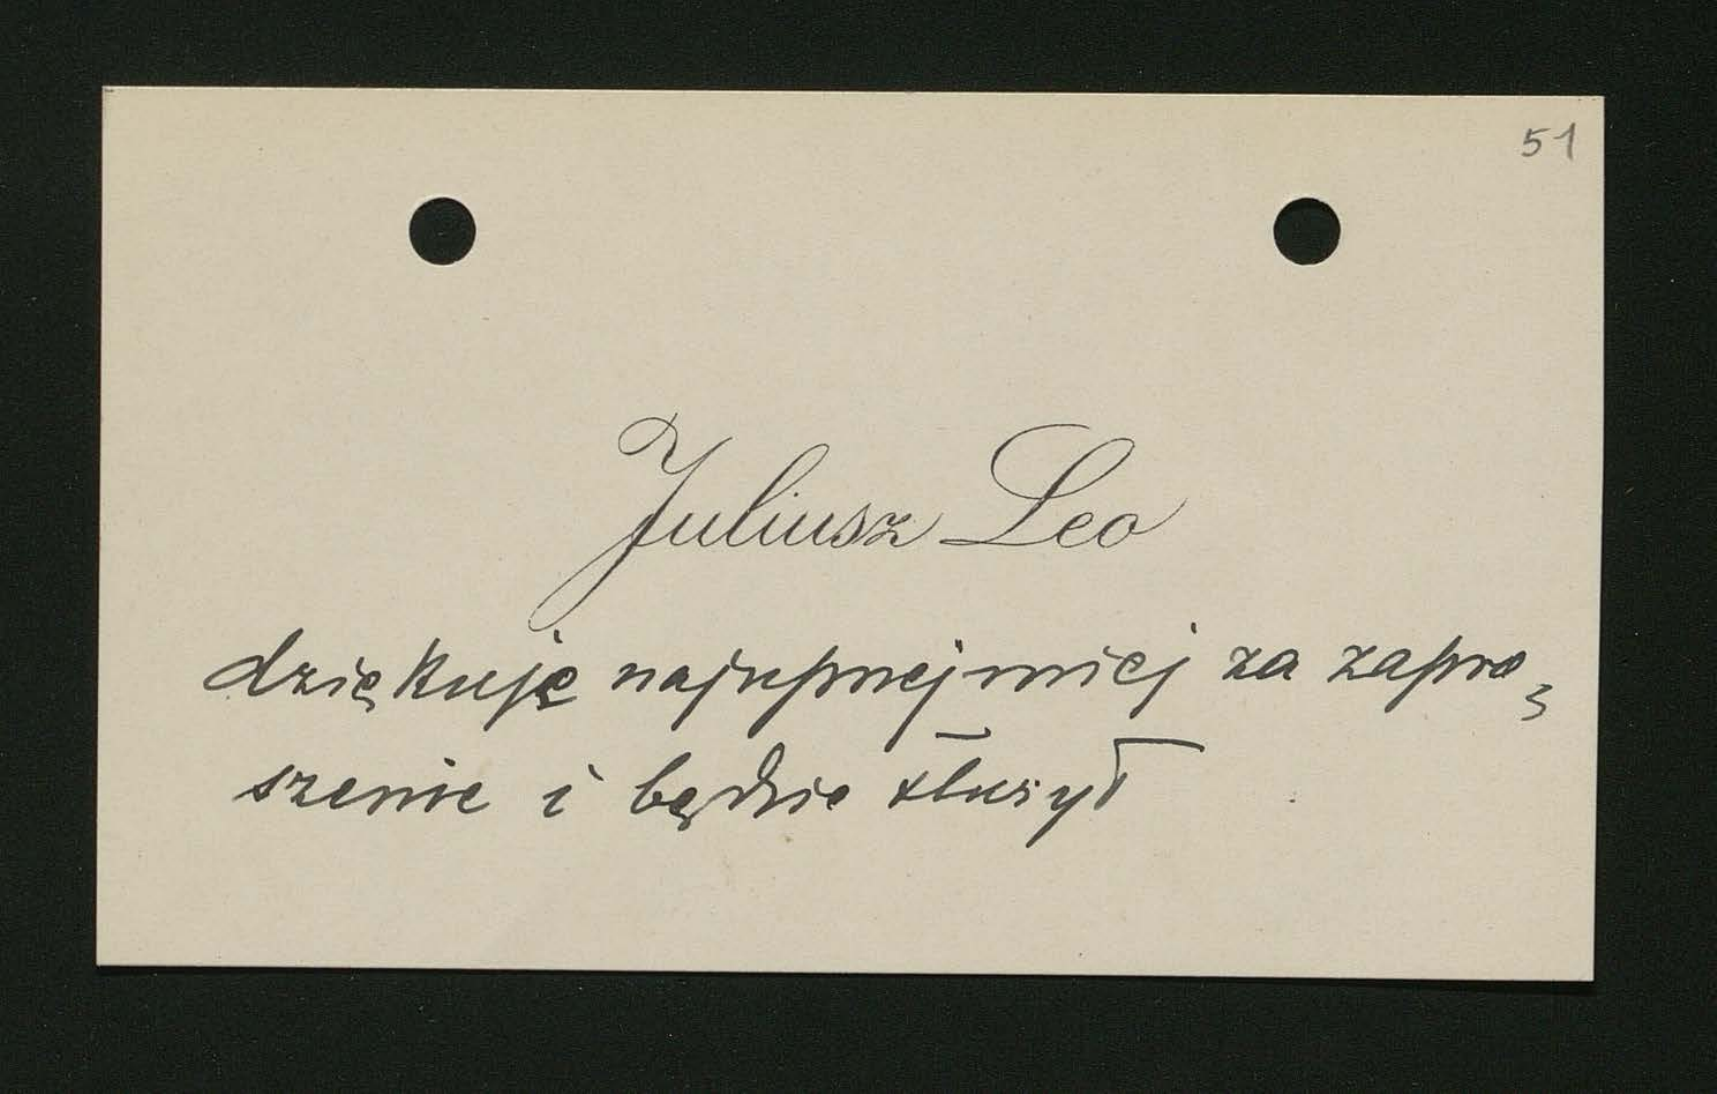 51
Juliusz Leo
dziękuję najuprzejmiej za zapro
szenie i będzie służył